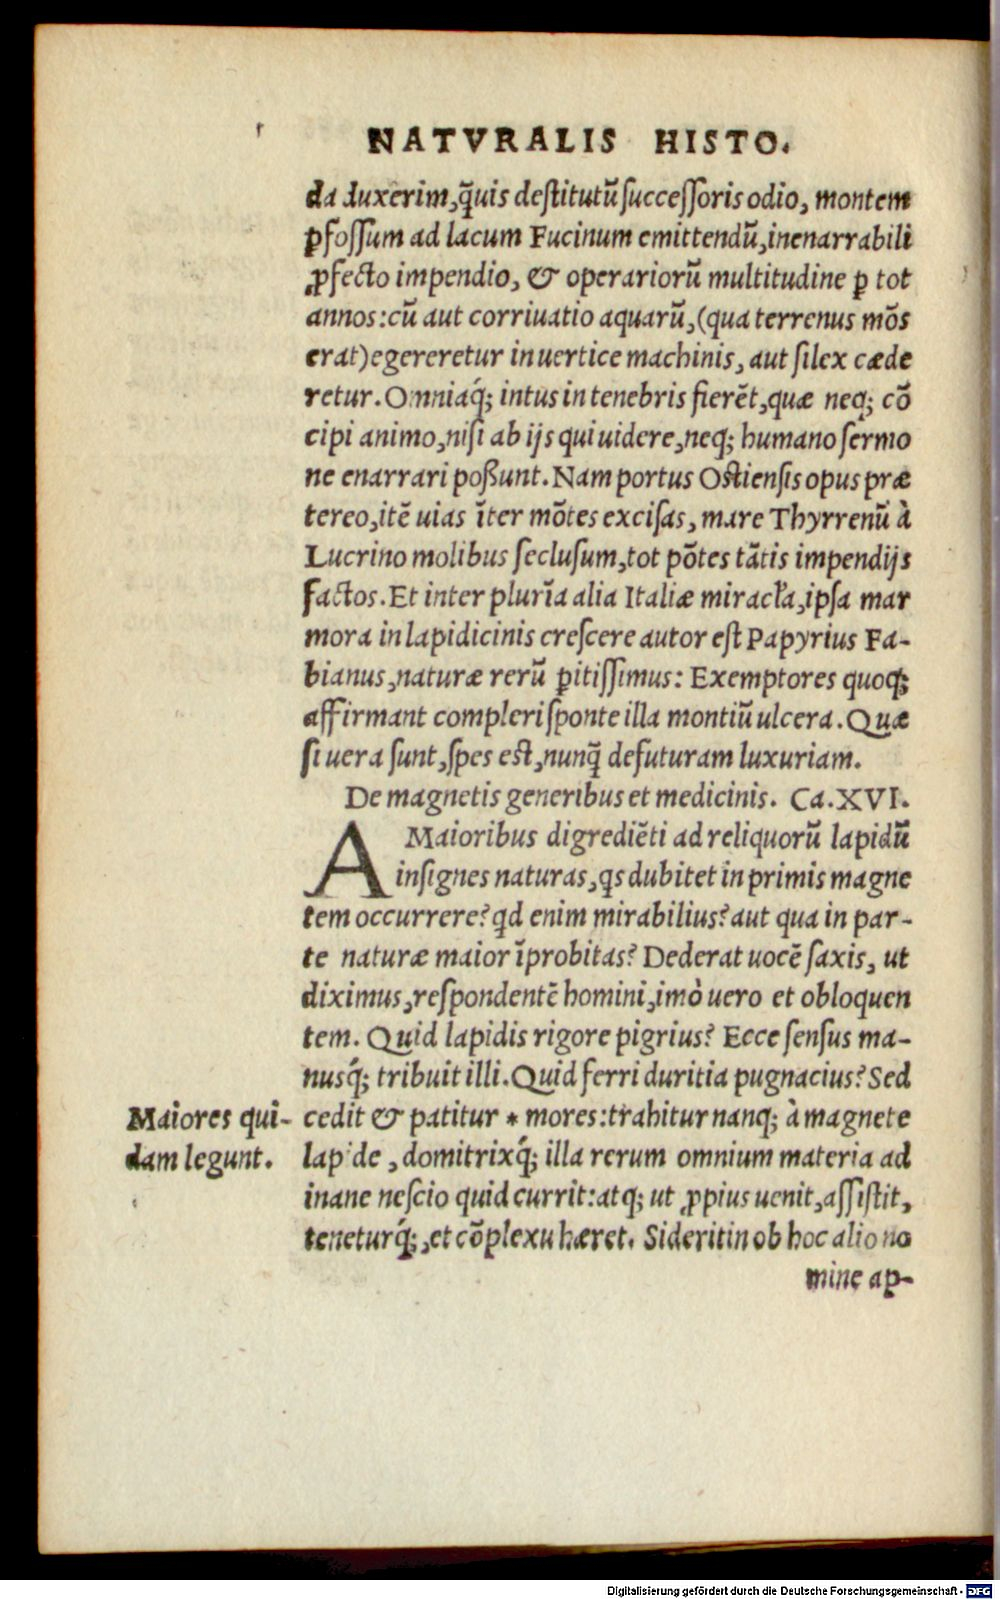 NATVRALIS HISTO.
da duxerim,q̃uis destitutũ successoris odio, montem
ꝑfossum ad lacum Fucinum emittendũ,inenarrabili
ꝓfecto impendio, & operariorũ multitudine ꝑ tot
annos:cũ aut corriuatio aquarũ,(qua terrenus mõs
erat)egereretur in uertice machinis, aut silex cæde
retur.Omniaq́; intus in tenebris fierẽt,quæ neq; cõ
cipi animo,nisi ab ijs qui uidere,neq; humano sermo
ne enarrari poßunt.Nam portus Ostiensis opus præ
tereo,itẽ uias ĩter mõtes excisas, mare Thyrrenũ à
Lucrino molibus seclusum,tot põtes tãtis impendijs
factos.Et inter plurĩa alia Italiæ miracła,ipsa mar
mora in lapidicinis crescere autor est Papyrius Fa-
bianus,naturæ rerũ ꝑitissimus: Exemptores quoq;
affirmant compleri sponte illa montiũ ulcera.Quæ
si uera sunt,spes est,nunq̃ defuturam luxuriam.
De magnetis generibus et medicinis. Ca.XVI.
A Maioribus digrediẽti ad reliquorũ lapidũ
insignes naturas,qs dubitet in primis magne
tem occurrere?qd enim mirabilius?aut qua in par-
te naturæ maior ĩprobitas? Dederat uocẽ saxis, ut
diximus,respondentẽ homini,imò uero et obloquen
tem. Quid lapidis rigore pigrius? Ecce sensus ma-
nusq́; tribuit illi.Quid ferri duritia pugnacius?Sed
Maiores qui- cedit & patitur * mores:trahitur nanq; à magnete
dam legunt. lapide ,domitrixq́; illa rerum omnium materia ad
inane nescio quid currit:atq; ut ꝓpius uenit,assistit,
teneturq́;,et cõplexu hæret. Sideritin ob hoc alio no
mine ap-
Digitalisierung gefördert durch die Deutsche Forschungsgemeinschaft - DFG